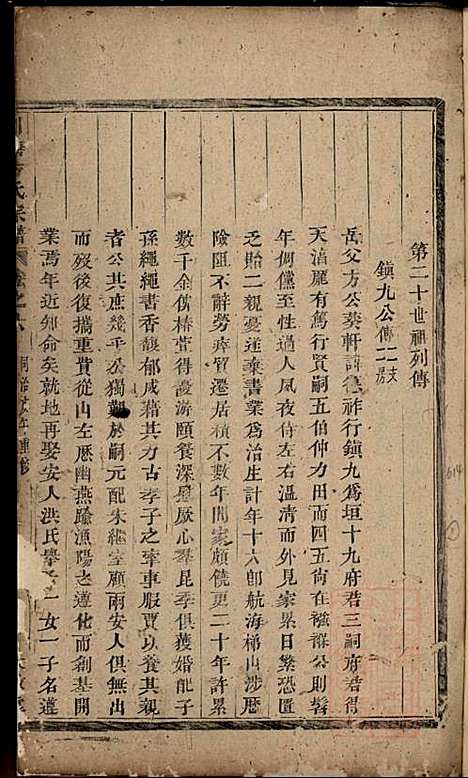 第二十世祖列傳
鎮九公傳二支二房
岳父方公葵軒諱德祚行鎮九爲垣十九府君三嗣府君得
天湻龎有篤行賢嗣五伯仲力田而四五尚在襁褓公則髫
年倜儻至性過人夙夜侍左右溫凊而外見家累日繁恐匱
乏貽二親憂遂棄書業爲治生計年十六卽航海梯山涉歷
險阻不辭勞瘁貿遷居積不數年間家頗饒更二十年許累
數千金俾椿萱得優游頤養深慰厥心羣昆季俱獲婚配子
孫繩繩書香馥郁咸藉其力古孝子之牽車服賈以養其親
者公其庶幾乎公獨艱於嗣元配朱繼室顧兩安人俱無出
而歿後復攜重貲從山左歷幽燕踰漁陽之遵化而剏基開
業焉年近知命矣就地再娶安人洪氏舉 一女一子名遵
氏宗譜 卷之六